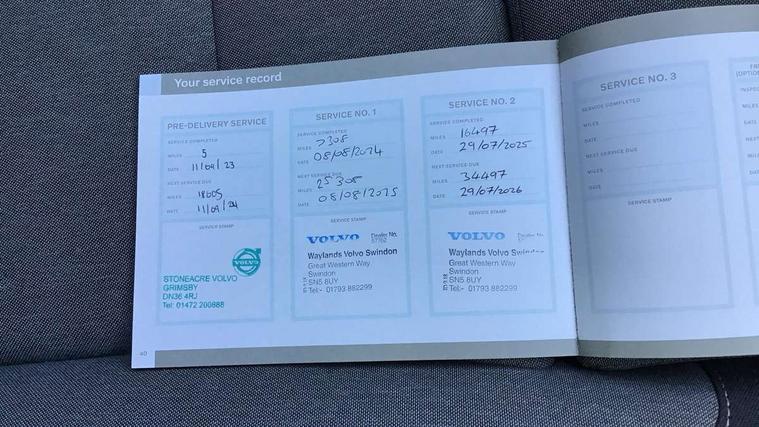 Your service record
PRE-DELIVERY SERVICE
SERVICE COMPLETED
MILES 5
DATE 11/09/23
NEXT SERVICE DUE
MILES 18005
DATE 11/09/24
SERVICE STAMP
VOLVO
STONEACRE VOLVO
GRIMSBY
DN36 4RJ
Tel: 01472 200888
40
SERVICE NO. 1
SERVICE COMPLETED
MILES 7308
DATE 08/08/2024
NEXT SERVICE DUE
MILES 25308
DATE 08/08/2025
SERVICE STAMP
VOLVO Dealer No.
Waylands Volvo Swindon
Great Western Way
Swindon
SN5 8UY
Tel:- 01793 882299
SERVICE NO. 2
SERVICE COMPLETED
MILES 16497
DATE 29/07/2025
NEXT SERVICE DUE
MILES 34497
DATE 29/07/2026
SERVICE STAMP
VOLVO
Waylands Volvo Swindon
Great Western Way
Swindon
SN5 8UY
Tel:- 01793 882299
SERVICE NO. 3
SERVICE COMPLETED
MILES
DATE
NEXT SERVICE DUE
MILES
DATE
SERVICE STAMP
MILES
DATE